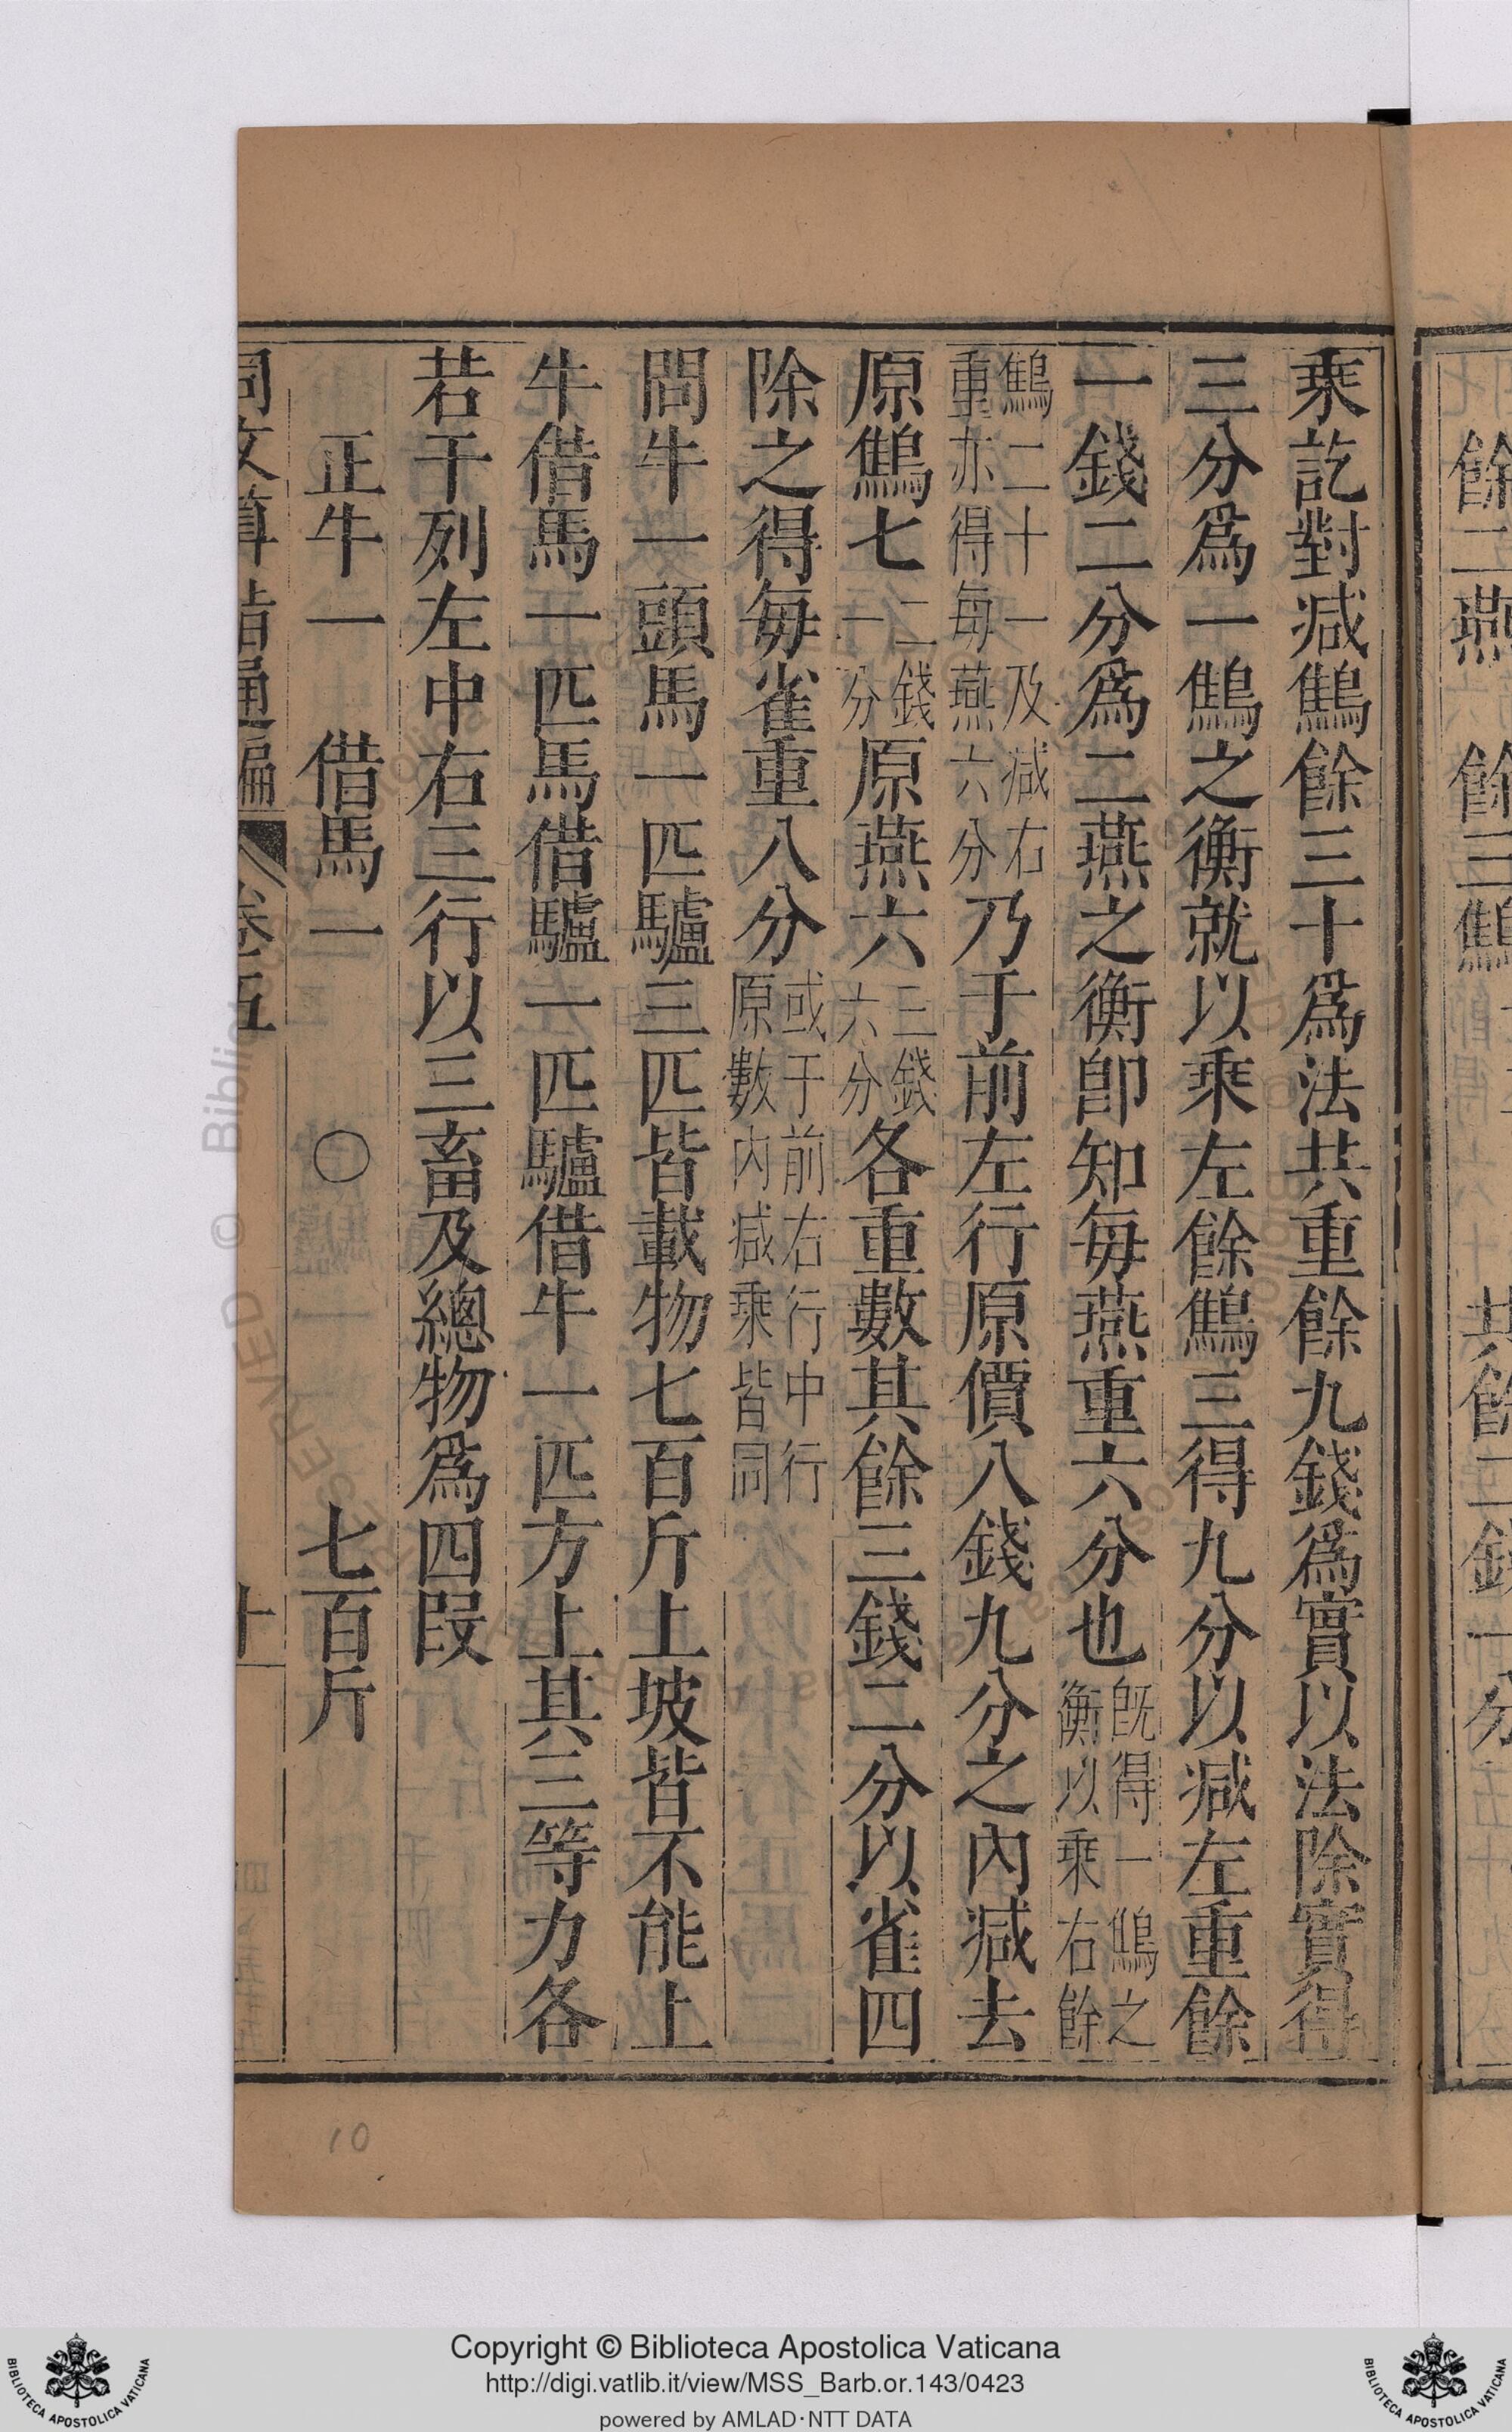 乘訖對減鷦餘三十爲法共重餘九錢爲實以法除實得
三分爲一鷦之衡就以乘左餘鷦三得九分以減左重餘
一錢二分爲二燕之衡卽知每燕重六分也旣得一鷦之衡以乘右餘
鷦二十一及減右重亦得每燕六分乃于前左行原價八錢九分之內減去
原鷦七二錢一分原燕六三錢六分各重數其餘三錢二分以雀四
除之得每雀重八分或于前右行中行原數內減乘皆同
問牛一頭馬一匹驢三匹皆載物七百斤上坡皆不能上
牛借馬一匹馬借驢一匹驢借牛一匹方上其三等力各
若干列左中右三行以三畜及總物爲四段
正牛一 借馬一 〇 七百斤
同文算指通編 卷五 十
10
Copyright © Biblioteca Apostolica Vaticana
http://digi.vatlib.it/view/MSS_Barb.or.143/0423
powered by AMLAD·NTT DATA
BIBLIOTECA APOSTOLICA VATICANA
BIBLIOTECA APOSTOLICA VATICANA